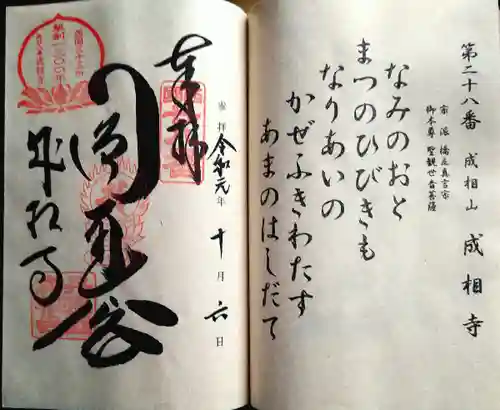 第二十八番 成相山 成相寺
宗派 橋立真言宗
御本尊 聖観世音菩薩
なみのおと
まつのひびきも
なりあいの
かぜふきわたす
あまのはしだて
奉拝
参拝 令和元年 十月 六日
円満閣
成相寺